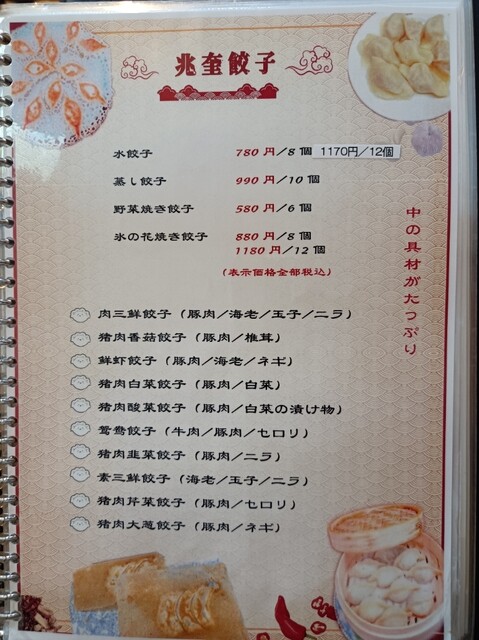 兆奎餃子
水餃子 780 円／8 個 1170円／12個
蒸し餃子 990 円／10 個
野菜焼き餃子 580 円／6 個
氷の花焼き餃子 880 円／8 個
1180 円／12 個
（表示価格全部税込）
中の具材がたっぷり
肉三鮮餃子（豚肉／海老／玉子／ニラ）
猪肉香菇餃子（豚肉／椎茸）
鮮虾餃子（豚肉／海老／ネギ）
猪肉白菜餃子（豚肉／白菜）
猪肉酸菜餃子（豚肉／白菜の漬け物）
鸳鸯餃子（牛肉／豚肉／セロリ）
猪肉韭菜餃子（豚肉／ニラ）
素三鮮餃子（海老／玉子／ニラ）
猪肉芹菜餃子（豚肉／セロリ）
猪肉大葱餃子（豚肉／ネギ）